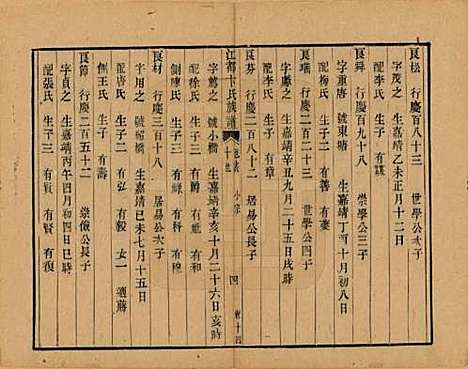 良松 行慶百八十三 世學公次子
字茂之 生嘉靖乙未正月十二日
配李氏 生子一 有謨
良舜 行慶百九十八 崇學公三子
字重唐 號東塘 生嘉靖丁酉十月初八日
配梅氏 生子二 有善 有
良瑞 行慶二百二十三 世學公四子
字獻之 生嘉靖辛丑九月二十五日戌時
配李氏 生子一 有章
良芬 行慶二百八十二 居易公長子
江都卞氏族譜 卷 小宗 四
字鶯之 號小橋 生嘉靖辛亥十月二十六日亥時
配徐氏 生子二 有爵 有和
側陳氏 生子三 有祿 有科 有穆
良材 行慶三百十八 居易公次子
字用之 號郁橋 生嘉靖己未七月十五日
配唐氏 生子二 有弘 有毅 女一 適蔣
側王氏 生子一 有壽
良節 行慶二百五十二 崇儉公長子
字貞之 生嘉靖丙午四月初四日巳時
配張氏 生子三 有貴 有賢 有